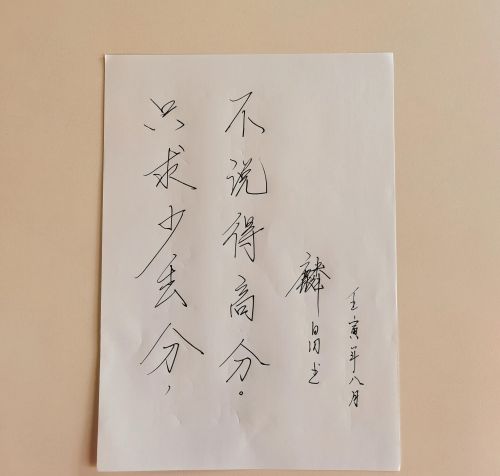 只求少丢分，
不说得高分。
麟昌书
壬寅年八月